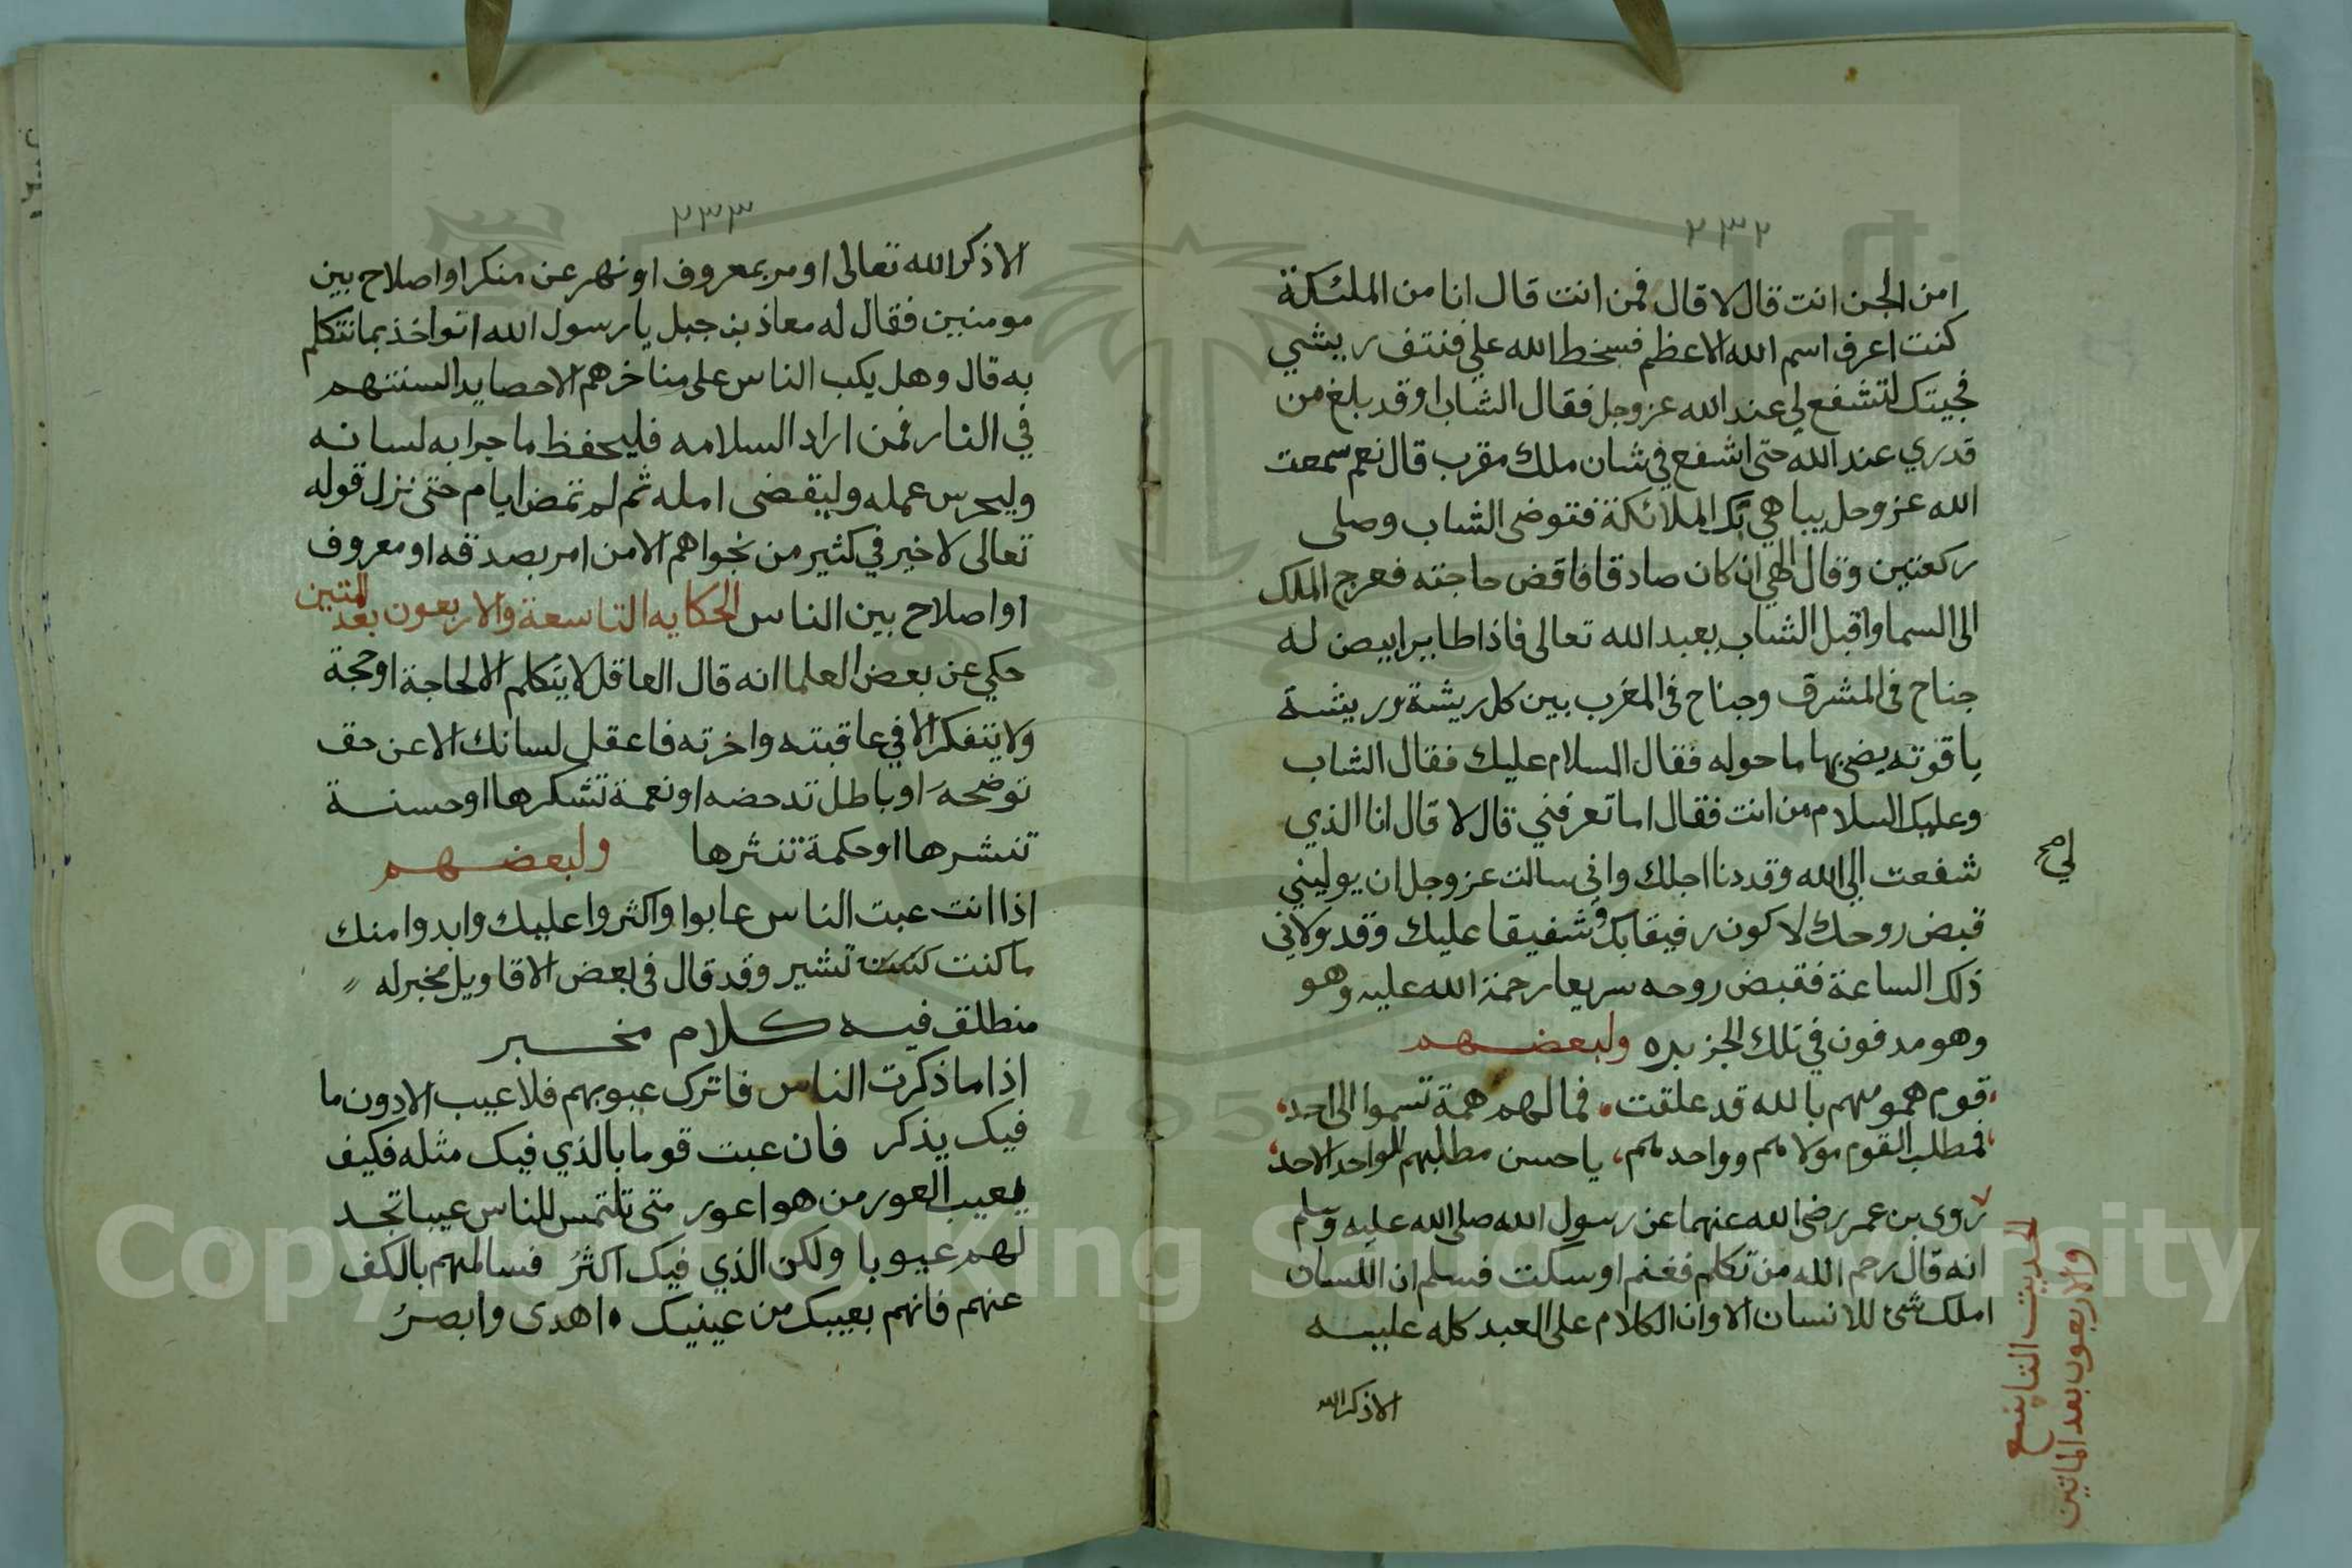 ٢٣٢
امن الجن انت قال لا قال فمن انت قال انا من الملئكة
كنت اعرف اسم الله الاعظم فسخط الله علي فنتف ريشي
فجيتك لتشفع لي عند الله عز وجل فقال الشاب اوقد بلغ من
قدري عند الله حتى اشفع في شان ملك مقرب قال نعم سمعت
الله عز وجل يباهي بك الملائكة فتوضى الشاب وصلى
ركعتين وقال الهي ان كان صادقا فاقض حاجته فعرج الملك
الى السما واقبل الشاب يعبد الله تعالى فاذا طاير ابيض له
جناح في المشرق وجناح في المغرب بين كل ريشة وريشة
ياقوته يضي بها ما حوله فقال السلام عليك فقال الشاب
وعليك السلام من انت فقال اما تعرفني قال لا قال انا الذي
شفعت لي الى الله وقد دنا اجلك واني سالت عز وجل ان يوليني
قبض روحك لاكون رفيقا بك وشفيقا عليك وقد ولاني
ذلك الساعة فقبض روحه سريعا رحمة الله عليه وهو
وهو مدفون في تلك الجزيره ولبعضهم
قوم همومهم بالله قد علقت، فما لهم همة تسموا الى احد،
فمطلب القوم مولاهم وواحدهم، يا حسن مطلبهم للواحد الاحد،
روى بن عمر رضي الله عنهما عن رسول الله صلى الله عليه وسلم
انه قال رحم الله من تكلم فغنم او سكت فسلم ان اللسان
املك شئ للانسان الا وان الكلام على العبد كله عليه
الا ذكر الله
لي صح
الحديث التاسع
والاربعون بعد الماتين
٢٣٣
الا ذكر الله تعالى او مر بمعروف او نهر عن منكر او اصلاح بين
مومنين فقال له معاذ بن جبل يا رسول الله انواخذ بما نتكلم
به قال وهل يكب الناس على مناخرهم الا حصايد السنتهم
في النار فمن اراد السلامه فليحفظ ما جرا به لسانه
وليحرس عمله وليقضى امله ثم لم تمض ايام حتى نزل قوله
تعالى لا خير في كثير من نجواهم الا من امر بصدقه او معروف
او اصلاح بين الناس الحكايه التاسعة والاربعون بعد المتين
حكي عن بعض العلما انه قال العاقل لا يتكلم الا لحاجة او حجة
ولا يتفكر الا في عاقبته واخرته فاعقل لسانك الا عن حق
توضحه او باطل تدحضه او نعمة تشكرها او حسنة
تنشرها او حكمة تنثرها ولبعضهم
اذا انت عبت الناس عابوا واكثروا عليك وابدوا منك
ما كنت تشير وقد قال في بعض الاقاويل مخبر له
منطلق فيه كلام مخبر
اذا ما ذكرت الناس فاترك عيوبهم فلا عيب الا دون ما
فيك يذكر فان عبت قوما بالذي فيك مثله فكيف
يعيب العور من هو اعور متى تلتمس للناس عيبا تجد
لهم عيوبا ولكن الذي فيك اكثرُ فسالمهم بالكف
عنهم فانهم بعيبك من عينيك اهدى وابصرُ